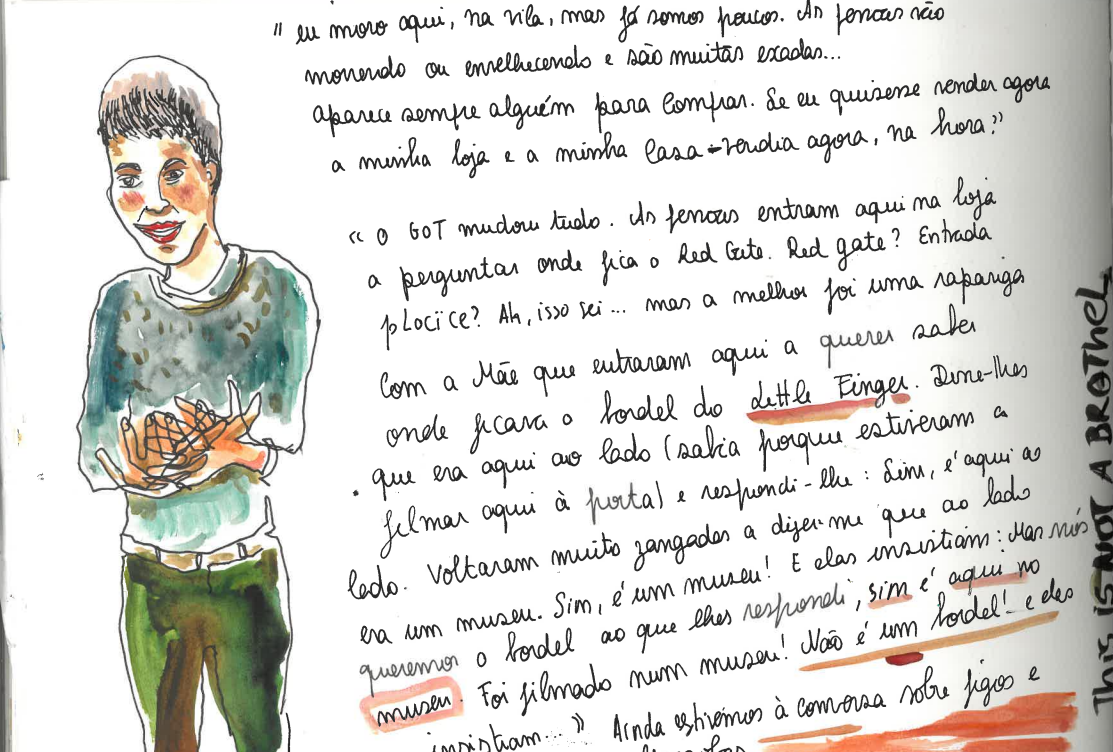 " eu moro aqui, na vila, mas já somos poucos. As pessoas vão
morrendo ou envelhecendo e são muitas exadas...
aparece sempre alguém para comprar. Se eu quisesse vender agora
a minha loja e a minha casa - vendia agora, na hora."
"O GOT mudou tudo. As pessoas entram aqui na loja
a perguntar onde fica o Red Gate. Red gate? Entrada
p Locïce? Ah, isso sei... mas a melhor foi uma rapariga
com a Mãe que entraram aqui a querer saber
onde ficava o bordel do Little Finger. Disse-lhes
que era aqui ao lado (sabia porque estiveram a
filmar aqui à porta) e respondi-lhe: Sim, é aqui ao
lado. Voltaram muito zangadas a dizer-me que ao lado
era um museu. Sim, é um museu! E elas insistiam: Mas nós
queremos o bordel ao que lhes respondi, sim é aqui no
museu. Foi filmado num museu! Não é um bordel! e elas
insistiam..." Ainda estivemos à conversa sobre figos e
THIS IS NOT A BROTHEL